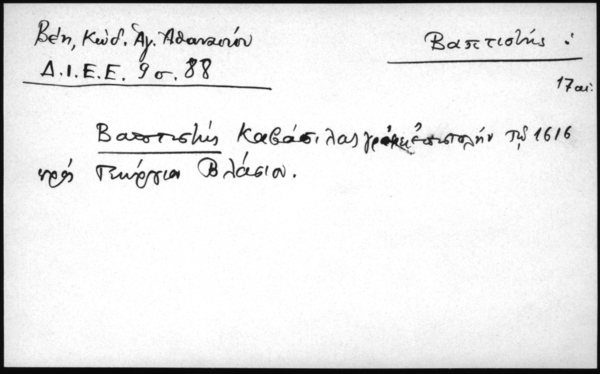 Βέη, Κώδ. Ἁγ. Ἀθανασίου
Δ.Ι.Ε.Ε. 9 σ. 88
Βαπτιστής :
17 αἰ.
Βαπτιστής Καβάσιλας γράφει ἐπιστολήν τῷ 1616
πρός Γεώργιον Βλάσιον.